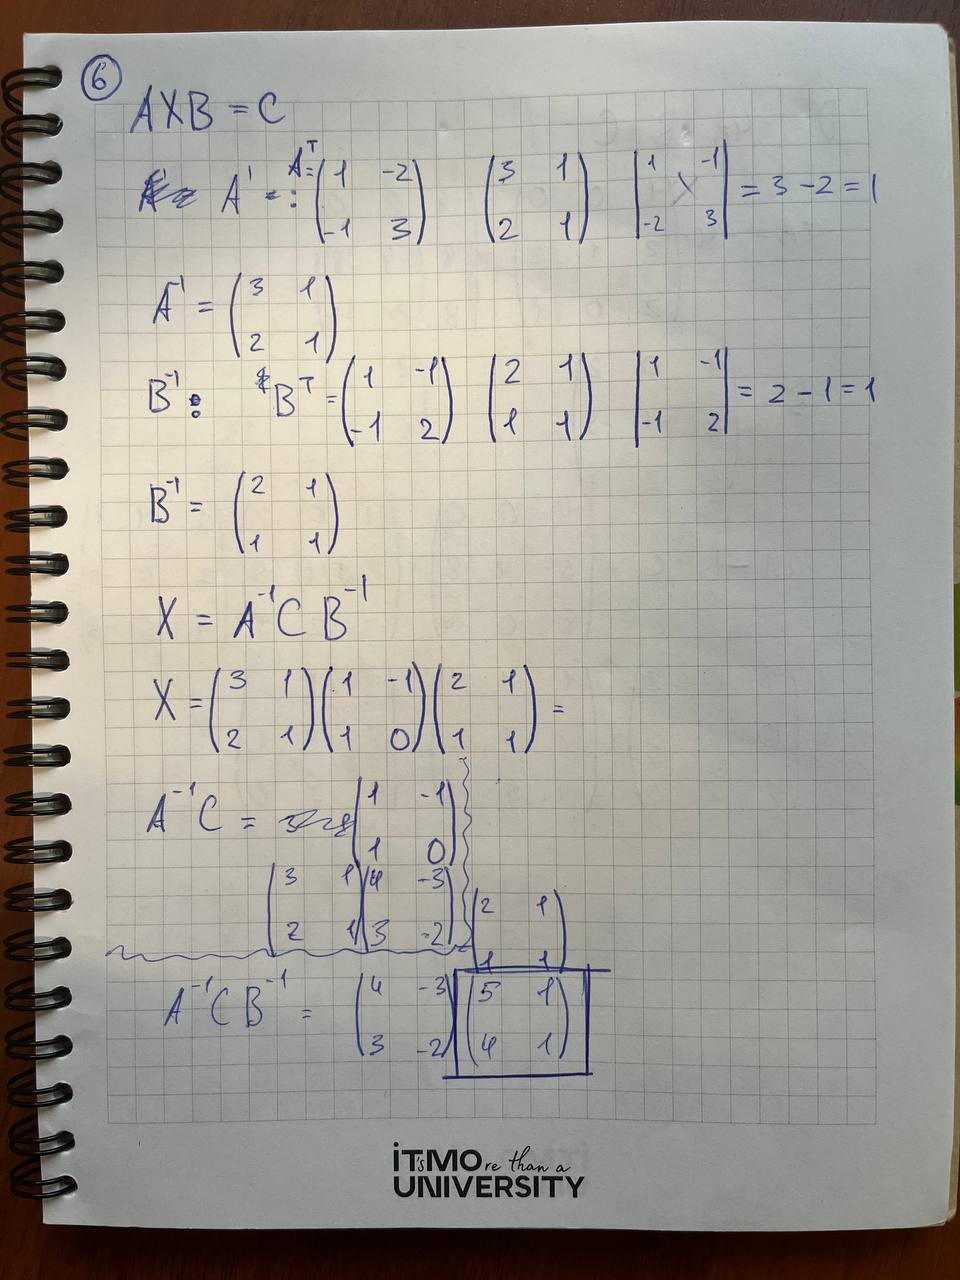 6
AXB = C
A⁻¹ : Aᵀ = (1 -2; -1 3) (3 1; 2 1) |1 -1; -2 3| = 3 - 2 = 1
A⁻¹ = (3 1; 2 1)
B⁻¹ : Bᵀ = (1 -1; -1 2) (2 1; 1 1) |1 -1; -1 2| = 2 - 1 = 1
B⁻¹ = (2 1; 1 1)
X = A⁻¹ C B⁻¹
X = (3 1; 2 1) (1 -1; 1 0) (2 1; 1 1) =
A⁻¹C = (1 -1; 1 0)
(3 1; 2 1) (4 -3; 3 -2) (2 1; 1 1)
A⁻¹ C B⁻¹ = (4 -3; 3 -2) (5 1; 4 1)
iT'sMOre than a
UNIVERSITY